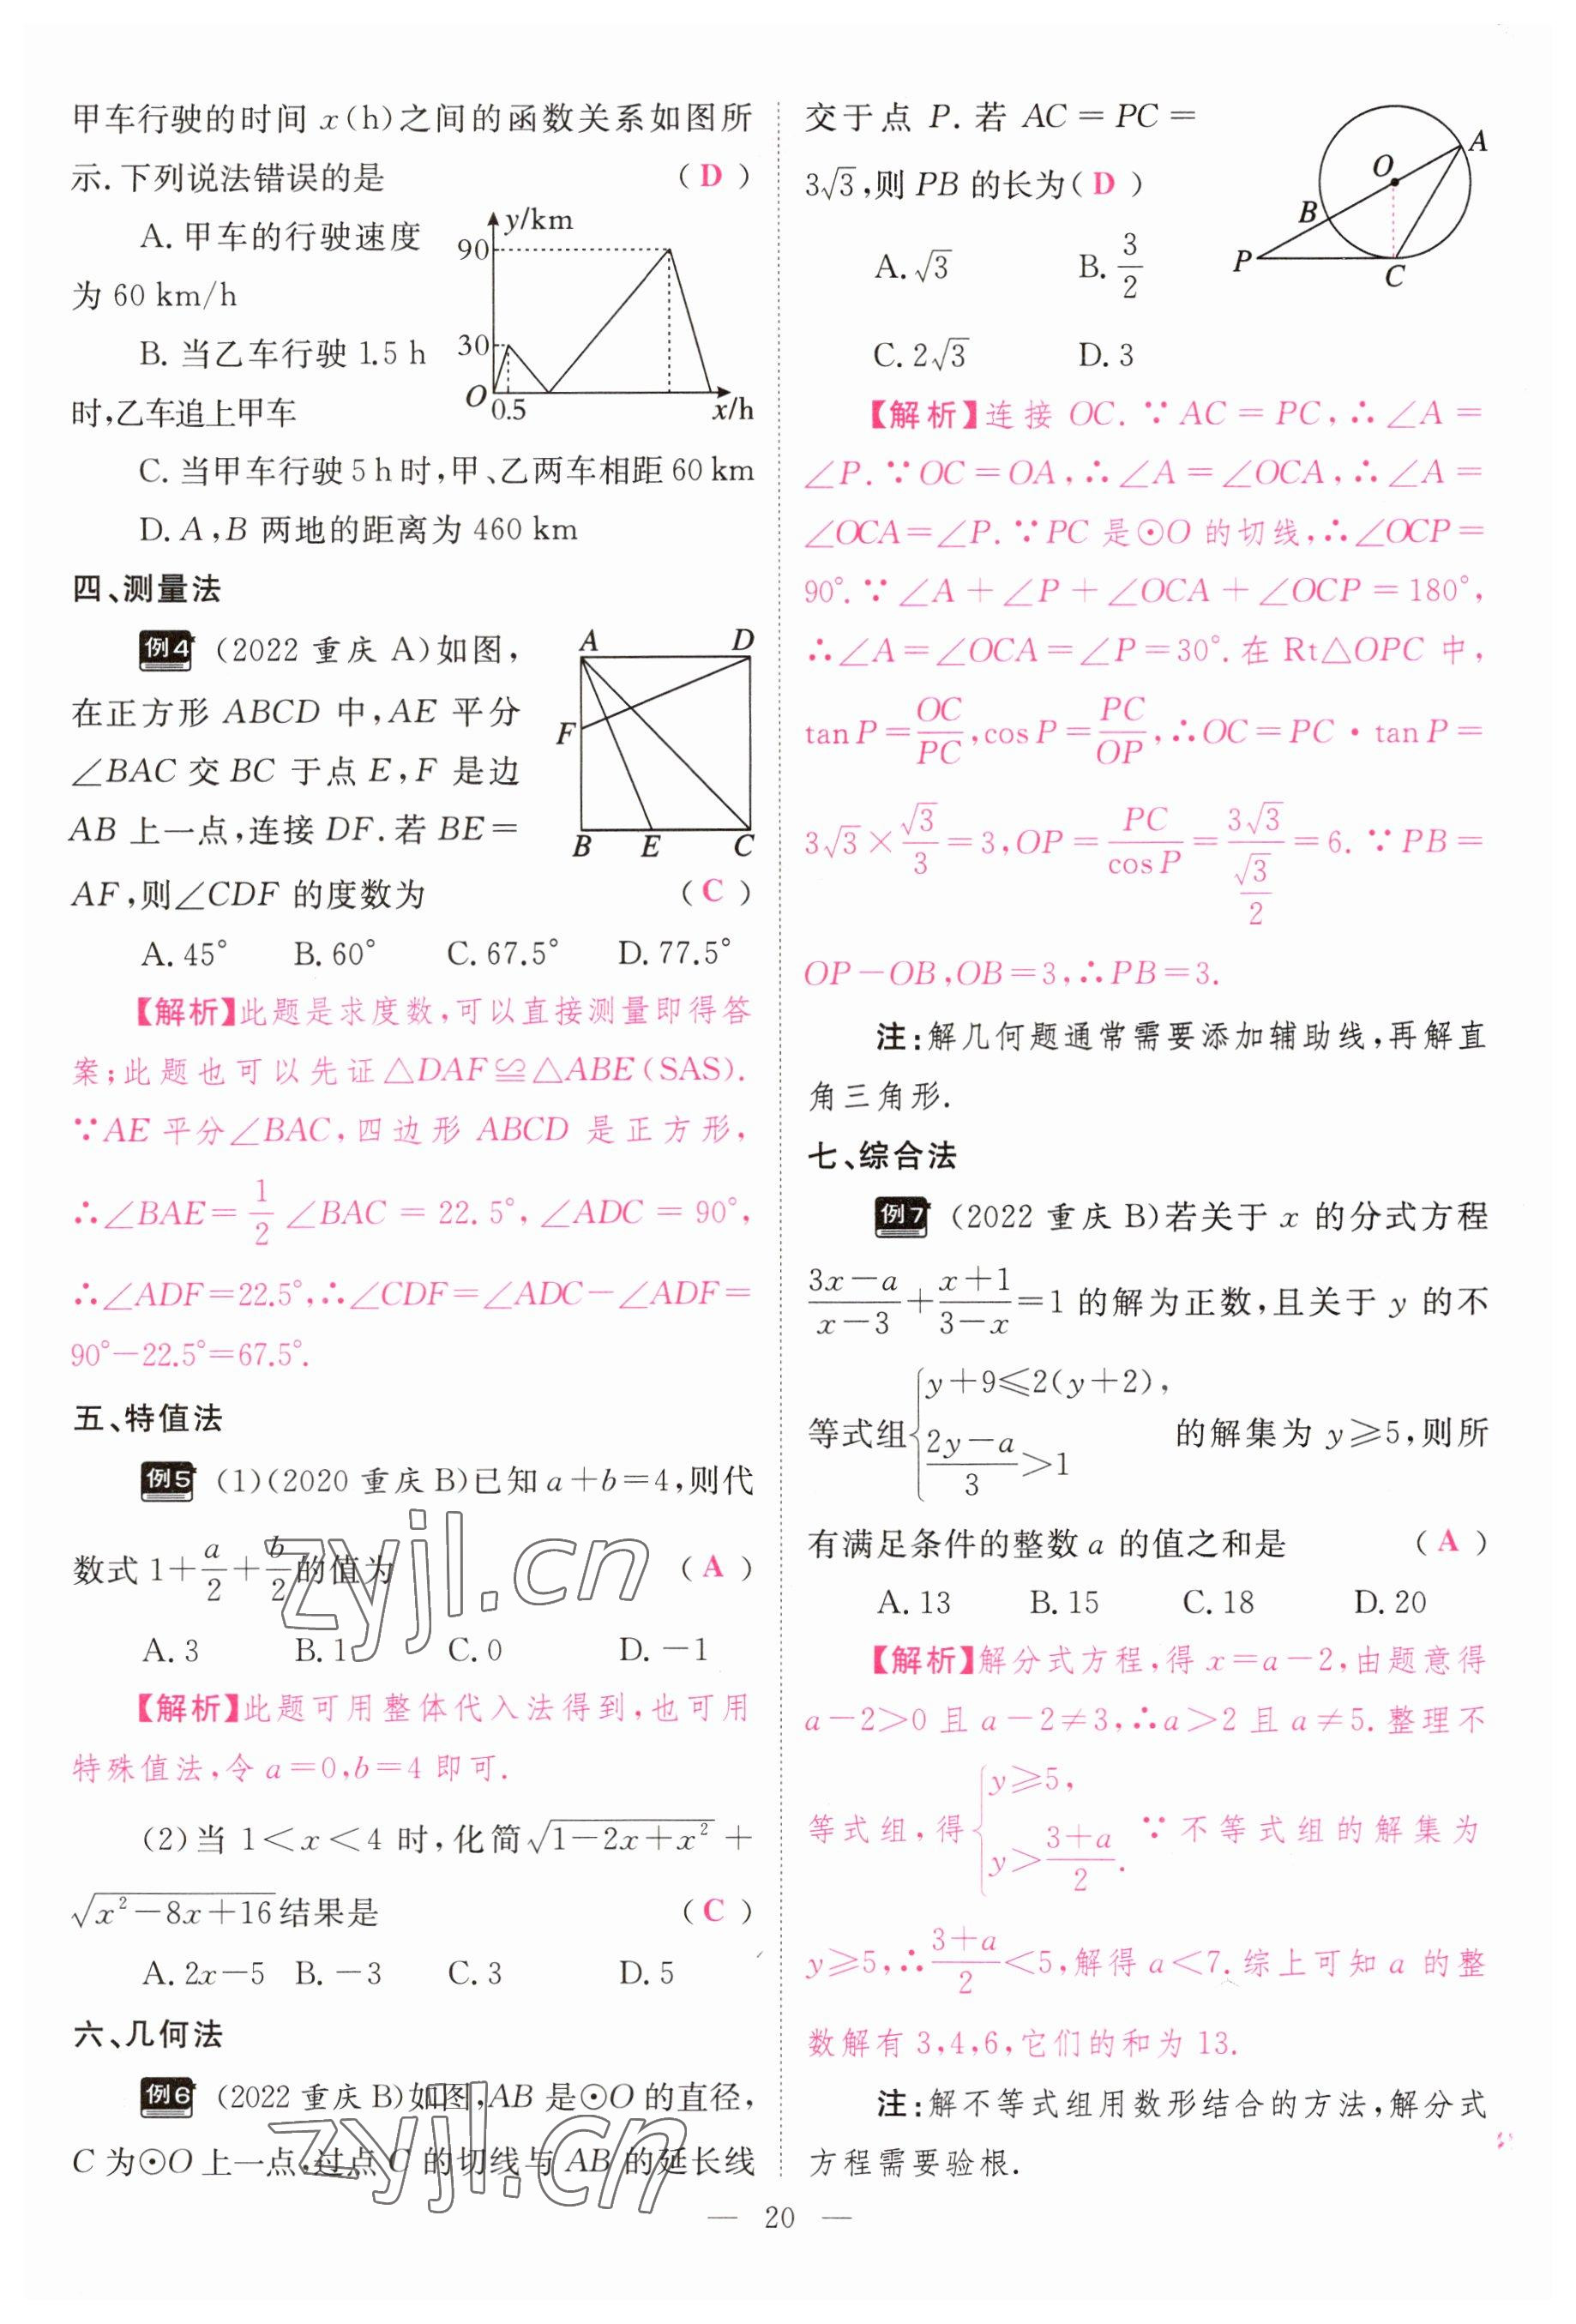 甲车行驶的时间 x(h)之间的函数关系如图所
示.下列说法错误的是 ( D )
A.甲车的行驶速度
为 60 km/h
B.当乙车行驶 1.5 h
时,乙车追上甲车
y/km
90
30
O
0.5
x/h
C.当甲车行驶5 h时,甲、乙两车相距60 km
D.A,B 两地的距离为 460 km
四、测量法
例4 (2022 重庆 A)如图,
在正方形 ABCD 中,AE 平分
∠BAC 交 BC 于点 E,F 是边
AB 上一点,连接 DF.若 BE=
AF,则∠CDF 的度数为 ( C )
A D
F
B E C
A.45° B.60° C.67.5° D.77.5°
【解析】此题是求度数,可以直接测量即得答
案;此题也可以先证△DAF≌△ABE(SAS).
∵AE 平分∠BAC,四边形 ABCD 是正方形,
∴∠BAE=1/2∠BAC=22.5°,∠ADC=90°,
∴∠ADF=22.5°,∴∠CDF=∠ADC-∠ADF=
90°-22.5°=67.5°.
五、特值法
例5 (1)(2020 重庆 B)已知 a+b=4,则代
数式 1+a/2+b/2的值为 ( A )
A.3 B.1 C.0 D.-1
【解析】此题可用整体代入法得到,也可用
特殊值法,令 a=0,b=4 即可.
(2)当 1<x<4 时,化简√(1-2x+x²)+
√(x²-8x+16)结果是 ( C )
A.2x-5 B.-3 C.3 D.5
六、几何法
例6 (2022 重庆 B)如图,AB 是⊙O 的直径,
C 为⊙O 上一点,过点 C 的切线与 AB 的延长线
交于点 P.若 AC=PC=
3√3,则 PB 的长为( D )
A.√3 B.3/2
C.2√3 D.3
A
O
B
P
C
【解析】连接 OC.∵AC=PC,∴∠A=
∠P.∵OC=OA,∴∠A=∠OCA,∴∠A=
∠OCA=∠P.∵PC 是⊙O 的切线,∴∠OCP=
90°.∵∠A+∠P+∠OCA+∠OCP=180°,
∴∠A=∠OCA=∠P=30°.在 Rt△OPC 中,
tan P=OC/PC,cos P=PC/OP,∴OC=PC·tan P=
3√3×√3/3=3,OP=PC/cos P=3√3/(√3/2)=6.∵PB=
OP-OB,OB=3,∴PB=3.
注:解几何题通常需要添加辅助线,再解直
角三角形.
七、综合法
例7 (2022 重庆 B)若关于 x 的分式方程
(3x-a)/(x-3)+(x+1)/(3-x)=1 的解为正数,且关于 y 的不
等式组{y+9≤2(y+2), (2y-a)/3>1 的解集为 y≥5,则所
有满足条件的整数 a 的值之和是 ( A )
A.13 B.15 C.18 D.20
【解析】解分式方程,得 x=a-2,由题意得
a-2>0 且 a-2≠3,∴a>2 且 a≠5.整理不
等式组,得{y≥5, y>(3+a)/2. ∵不等式组的解集为
y≥5,∴(3+a)/2<5,解得 a<7.综上可知 a 的整
数解有 3,4,6,它们的和为 13.
注:解不等式组用数形结合的方法,解分式
方程需要验根.
— 20 —
zyjl.cn
zyjl.cn